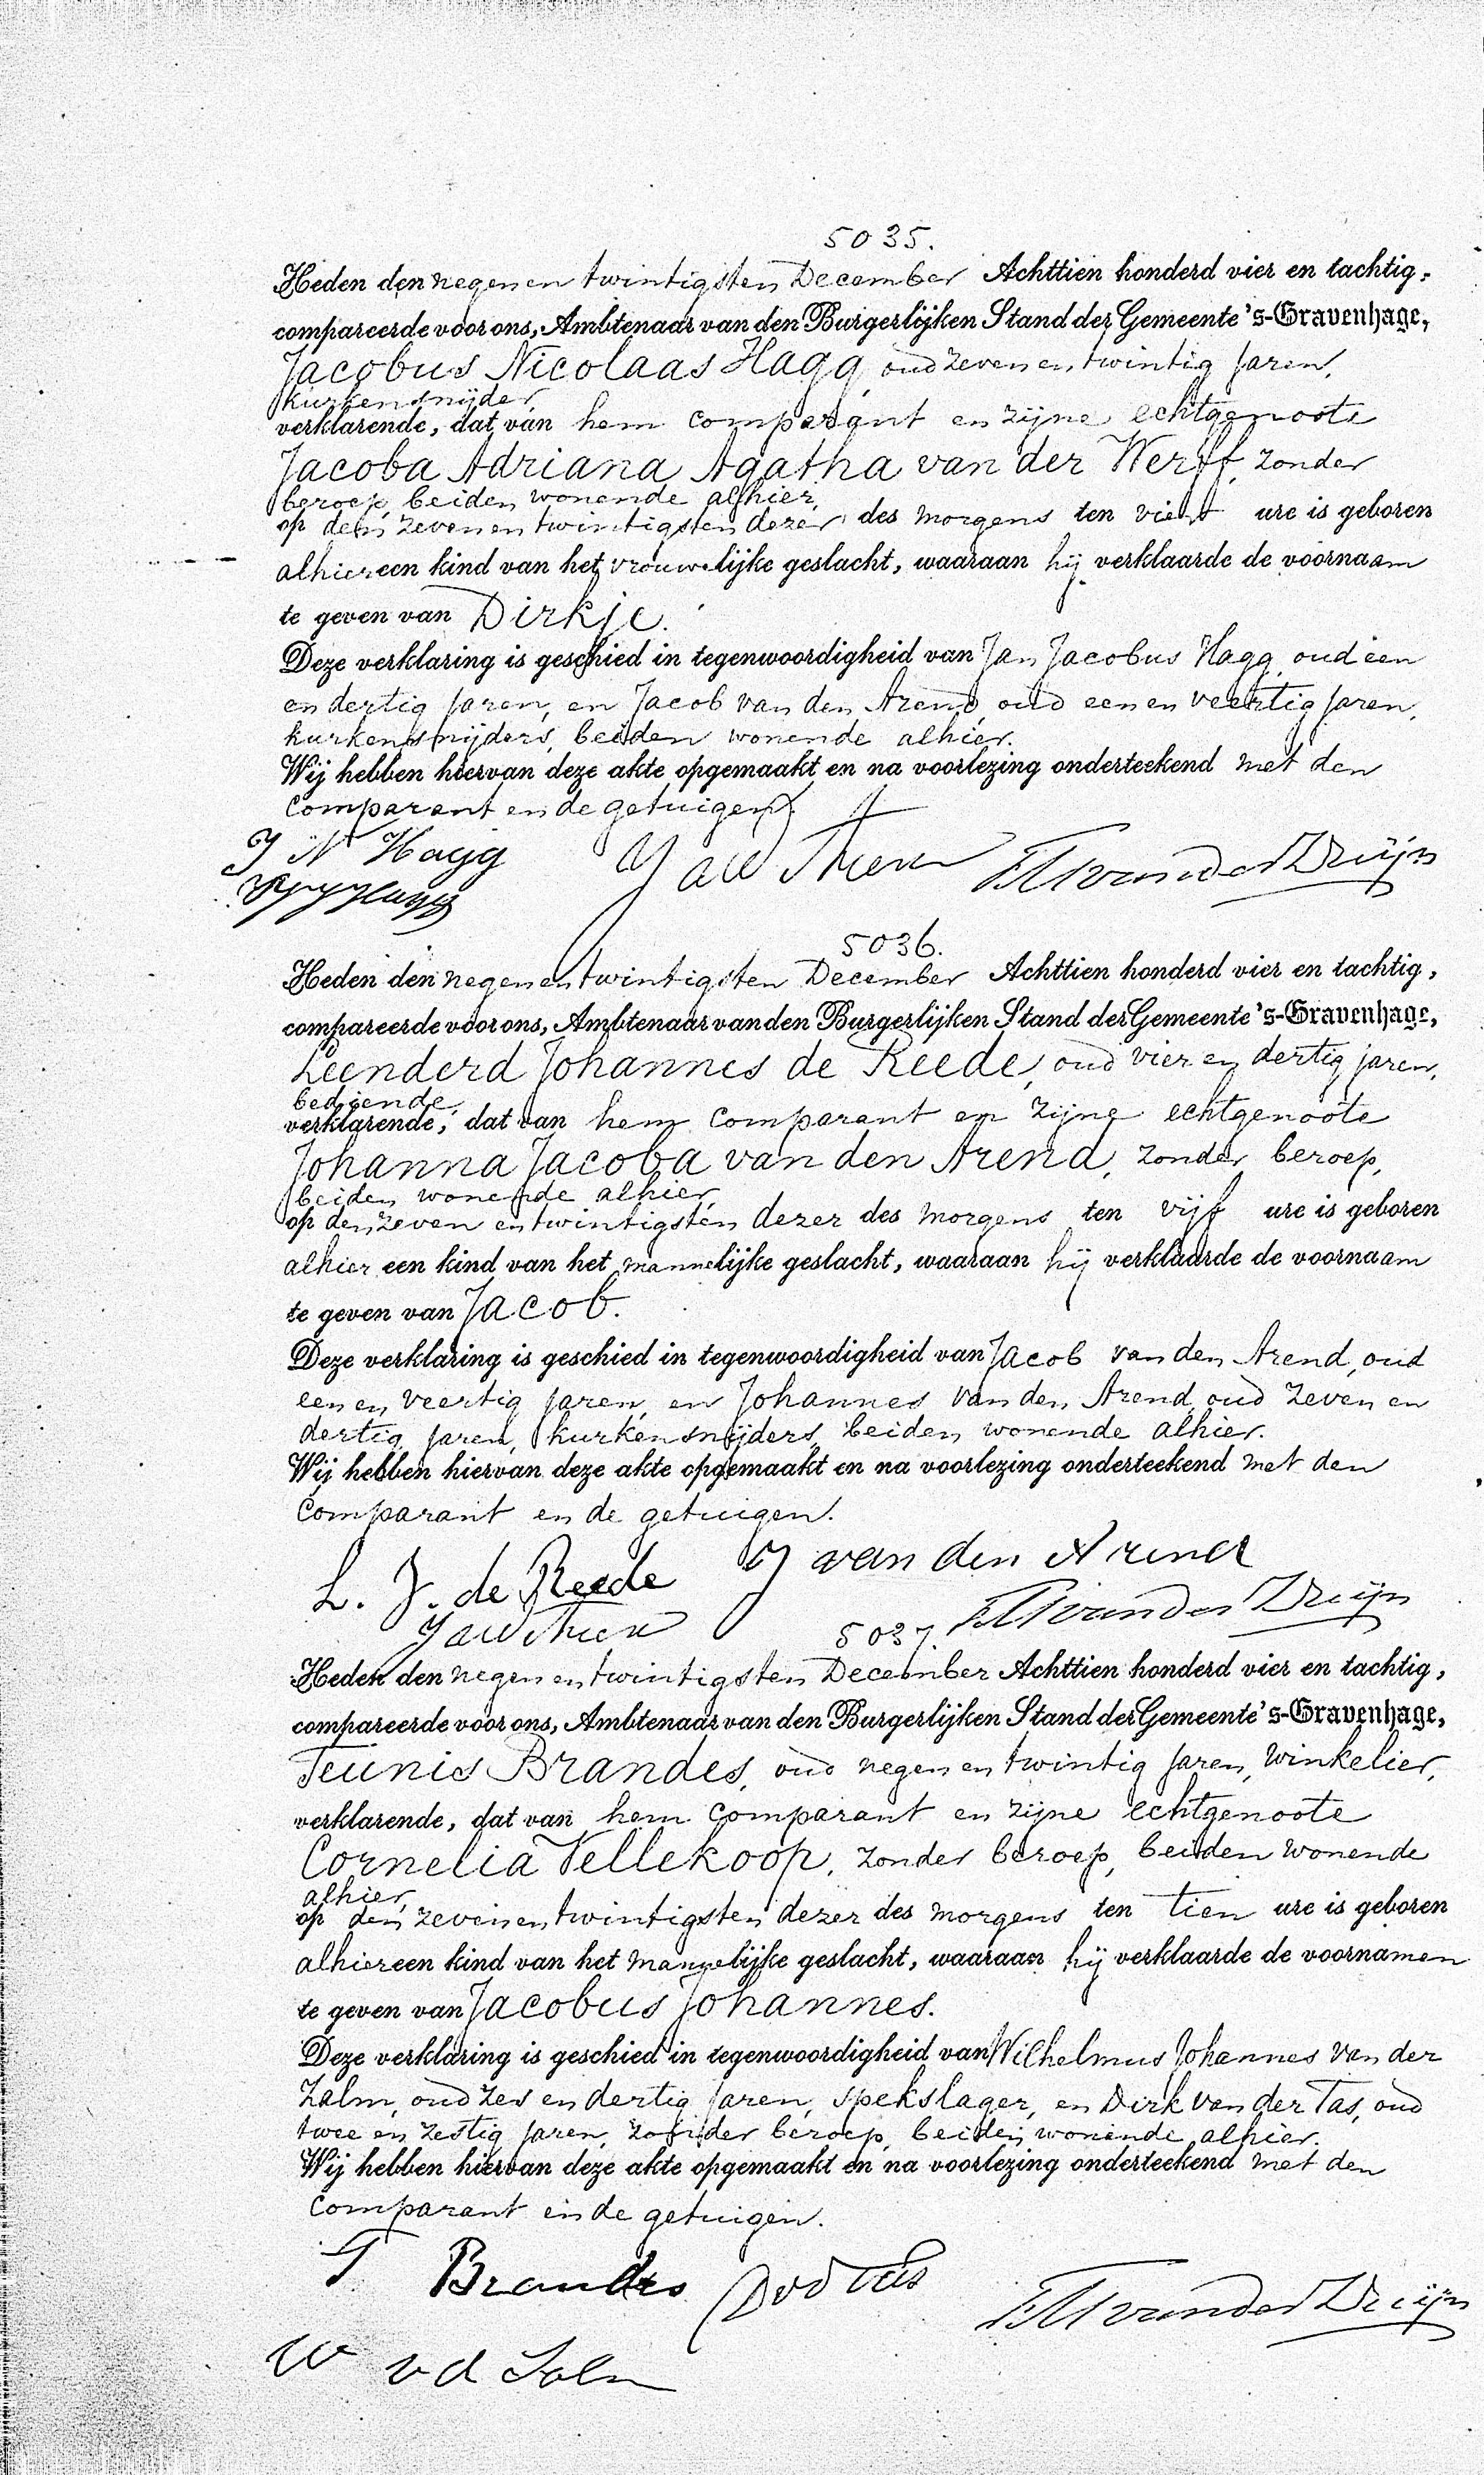 5035.
Heden den negen en twintigsten December Achttien honderd vier en tachtig,
compareerde voor ons, Ambtenaar van den Burgerlijken Stand der Gemeente 's-Gravenhage,
Jacobus Nicolaas Hagg, oud zeven en twintig jaren,
kurkensnijder,
verklarende, dat van hem comparant en zijne echtgenoote
Jacoba Adriana Agatha van der Werff, zonder
beroep, beiden wonende alhier,
op den zeven en twintigsten dezer des morgens ten vier ure is geboren
alhier een kind van het vrouwelijke geslacht, waaraan hij verklaarde de voornaam
te geven van Dirkje.
Deze verklaring is geschied in tegenwoordigheid van Jan Jacobus Hagg, oud een
en dertig jaren, en Jacob van den Arend, oud een en veertig jaren,
kurkensnijders, beiden wonende alhier.
Wij hebben hiervan deze akte opgemaakt en na voorlezing onderteekend met den
comparant en de getuigen.
J N Hagg
van der Druijn
5036.
Heden den negen en twintigsten December Achttien honderd vier en tachtig,
compareerde voor ons, Ambtenaar van den Burgerlijken Stand der Gemeente 's-Gravenhage,
Leenderd Johannes de Reede, oud vier en dertig jaren,
bediende,
verklarende, dat van hem comparant en zijne echtgenoote
Johanna Jacoba van den Arend, zonder beroep,
beiden wonende alhier,
op den zeven en twintigsten dezer des morgens ten vijf ure is geboren
alhier een kind van het mannelijke geslacht, waaraan hij verklaarde de voornaam
te geven van Jacob.
Deze verklaring is geschied in tegenwoordigheid van Jacob van den Arend, oud
een en veertig jaren, en Johannes van den Arend, oud zeven en
dertig jaren, kurkensnijders, beiden wonende alhier.
Wij hebben hiervan deze akte opgemaakt en na voorlezing onderteekend met den
comparant en de getuigen.
L. J. de Reede J van den Arend
van der Druijn
5037.
Heden den negen en twintigsten December Achttien honderd vier en tachtig,
compareerde voor ons, Ambtenaar van den Burgerlijken Stand der Gemeente 's-Gravenhage,
Teunis Brandes, oud negen en twintig jaren, winkelier,
verklarende, dat van hem comparant en zijne echtgenoote
Cornelia Vellekoop, zonder beroep, beiden wonende
alhier,
op den zeven en twintigsten dezer des morgens ten tien ure is geboren
alhier een kind van het mannelijke geslacht, waaraan hij verklaarde de voornamen
te geven van Jacobus Johannes.
Deze verklaring is geschied in tegenwoordigheid van Wilhelmus Johannes van der
Zalm, oud zes en dertig jaren, spekslager, en Dirk van der Tas, oud
twee en zestig jaren, zonder beroep, beiden wonende alhier.
Wij hebben hiervan deze akte opgemaakt en na voorlezing onderteekend met den
comparant en de getuigen.
T Brandes D v d Tas
van der Druijn
W v d Salm